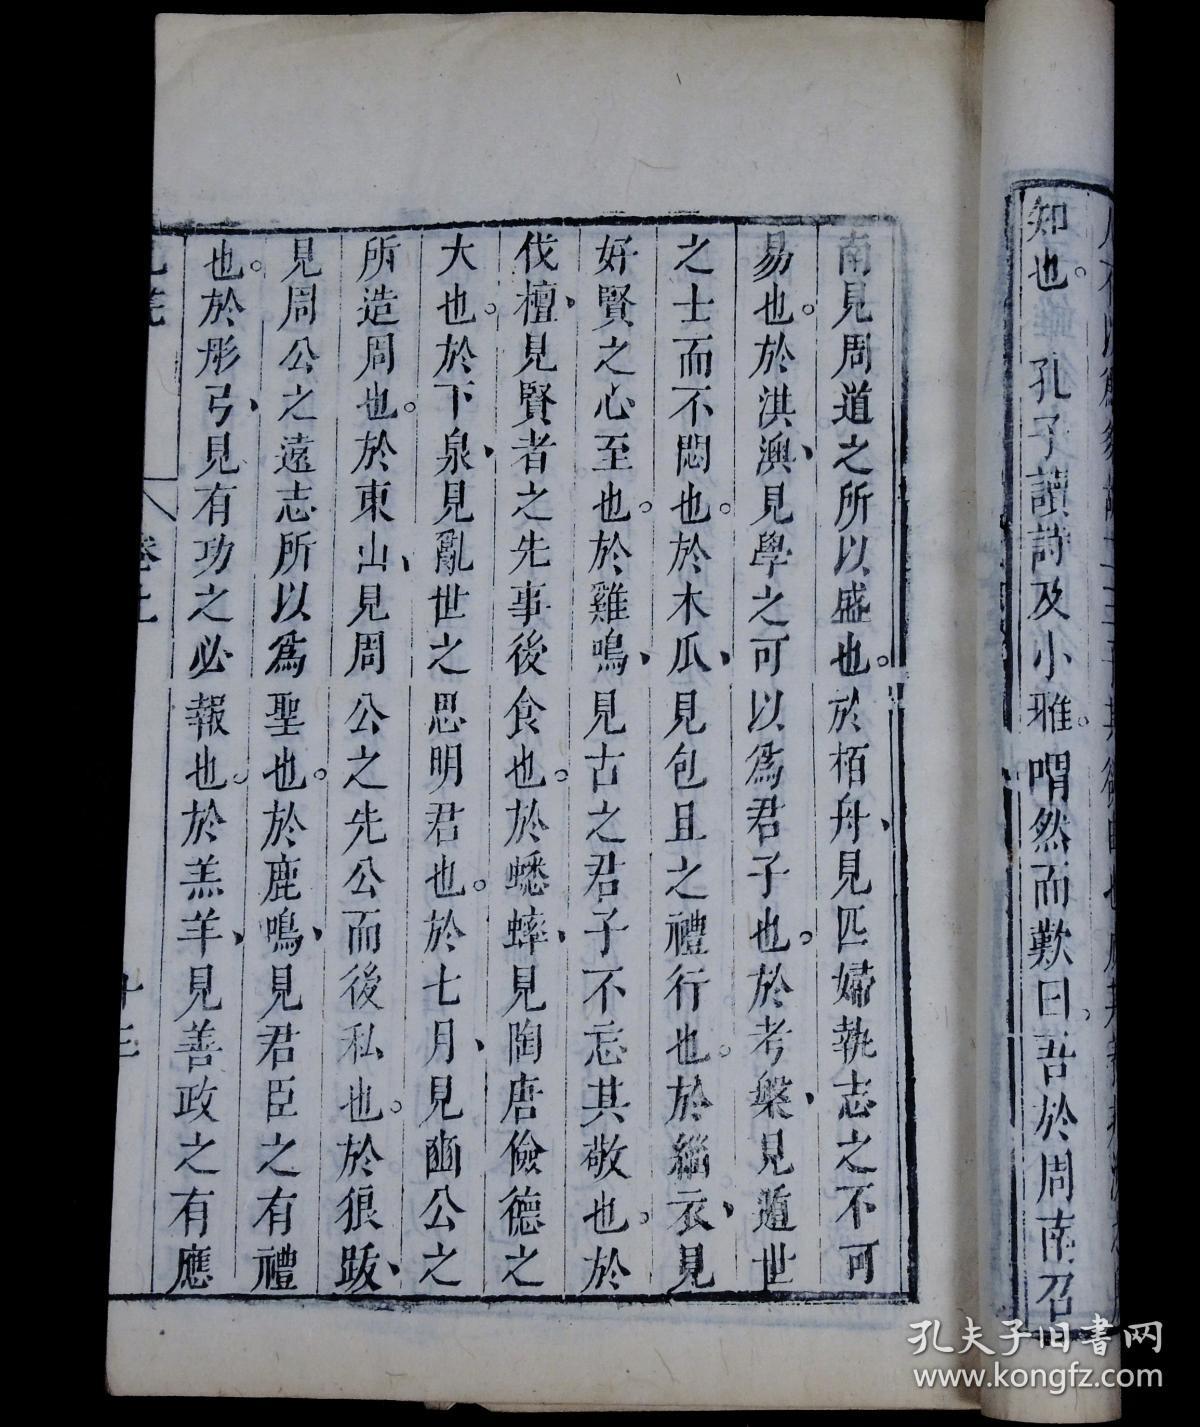 知也。孔子讀詩及小雅。喟然而歎曰。吾於周南召
南見周道之所以盛也。於栢舟、見匹婦執志之不可
易也。於淇澳、見學之可以爲君子也。於考槃、見遁世
之士而不悶也。於木瓜、見包且之禮行也。於緇衣、見
好賢之心至也。於雞鳴、見古之君子不忘其敬也。於
伐檀、見賢者之先事後食也。於蟋蟀、見陶唐儉德之
大也。於下泉、見亂世之思明君也。於七月、見豳公之
所造周也。於東山、見周公之先公而後私也。於狼跋、
見周公之遠志所以爲聖也。於鹿鳴、見君臣之有禮
也。於彤弓、見有功之必報也。於羔羊、見善政之有應
孔夫子旧书网
www.kongfz.com